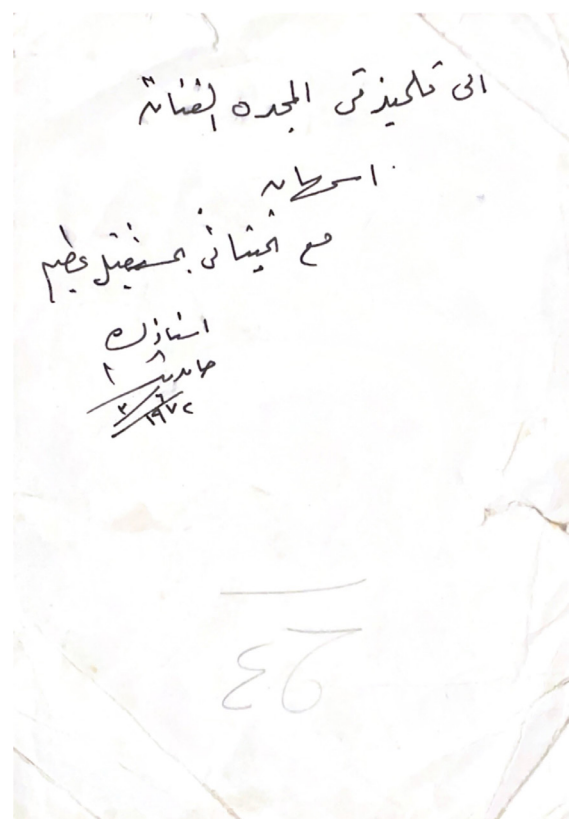 الى تلميذتي المجده الفنانة
اسمهان
مع تمنياتي بمستقبل عظيم
استاذك
١٩٧٢